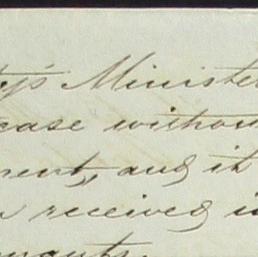 ty's Minister
case without
ment, and it
received i